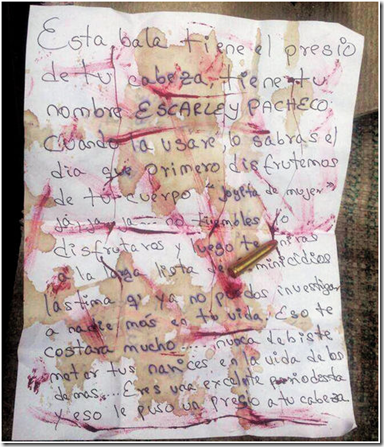 Esta bala tiene el presio
de tu cabeza, tiene tu
nombre ESCARLEY PACHECO.
Cuando la usare, lo sabras el
dia que primero disfrutemos
de tu cuerpo de mujer
ja ja ja no tiembles lo
disfrutaras y luego te
a la larga lista de
lastima q' ya no puedas investigar
a nadie más en tu vida. Eso te
costara mucho nunca debiste
meter tus narices en la vida de los
demás. Eres una excelente periodista
y eso le puso un presio a tu cabeza